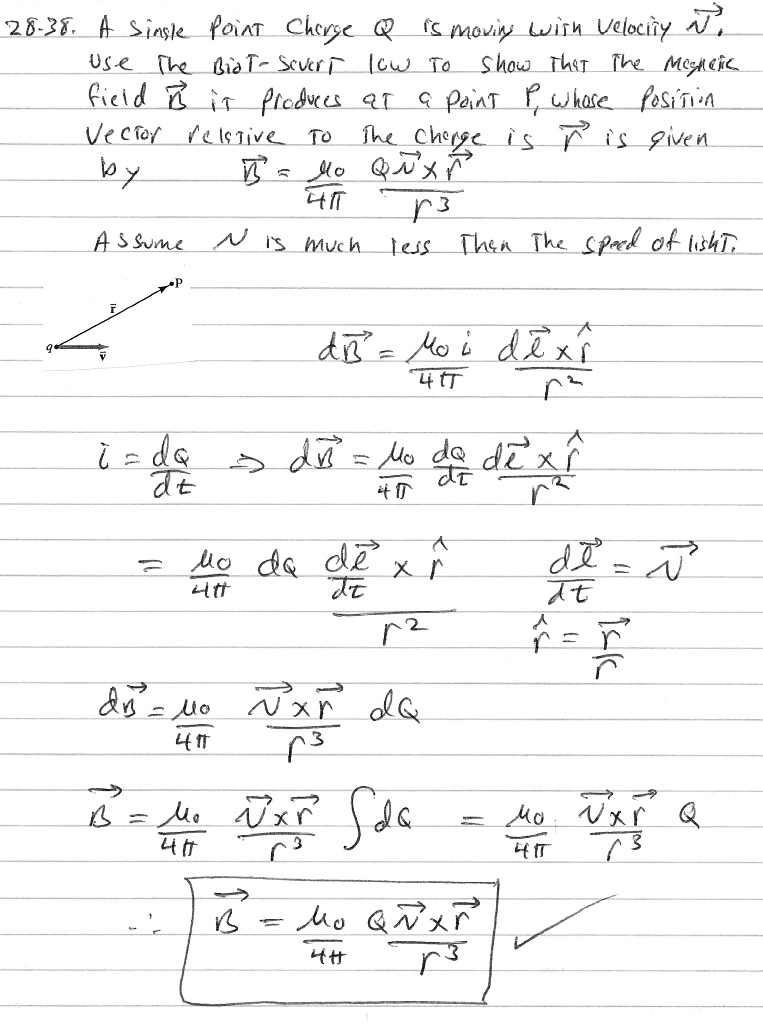 28-38. A single point charge Q is moving with velocity v⃗.
Use the Biot-Savart law to show that the magnetic
field B⃗ it produces at a point P, whose position
vector relative to the charge is r⃗ is given
by B⃗ = μ₀/4π Q v⃗ × r⃗ / r³
Assume v is much less than the speed of light.
P
r̄
q
v̄
dB⃗ = μ₀ i/4π dl⃗ × r̂ / r²
i = dQ/dt ⇒ dB⃗ = μ₀/4π dQ/dt dl⃗ × r̂ / r²
= μ₀/4π dQ dl⃗/dt × r̂ / r² dl⃗/dt = v⃗
r̂ = r⃗/r
dB⃗ = μ₀/4π v⃗ × r⃗ / r³ dQ
B⃗ = μ₀/4π v⃗ × r⃗ / r³ ∫dQ = μ₀/4π v⃗ × r⃗ / r³ Q
∴ B⃗ = μ₀/4π Q v⃗ × r⃗ / r³ ✓